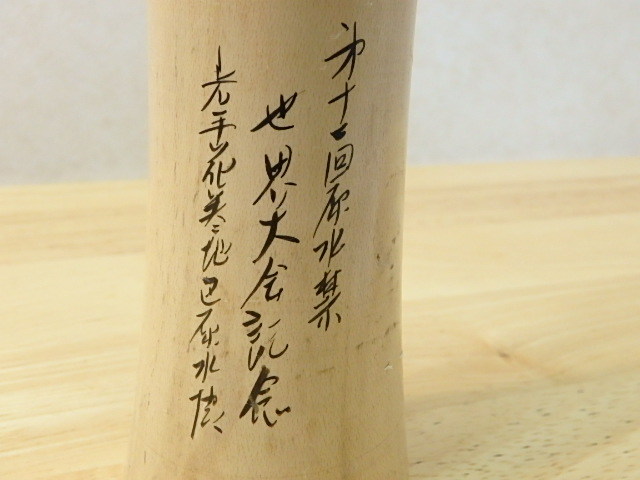 第十二回原水禁
世界大会記念
岩手花巻地区原水協